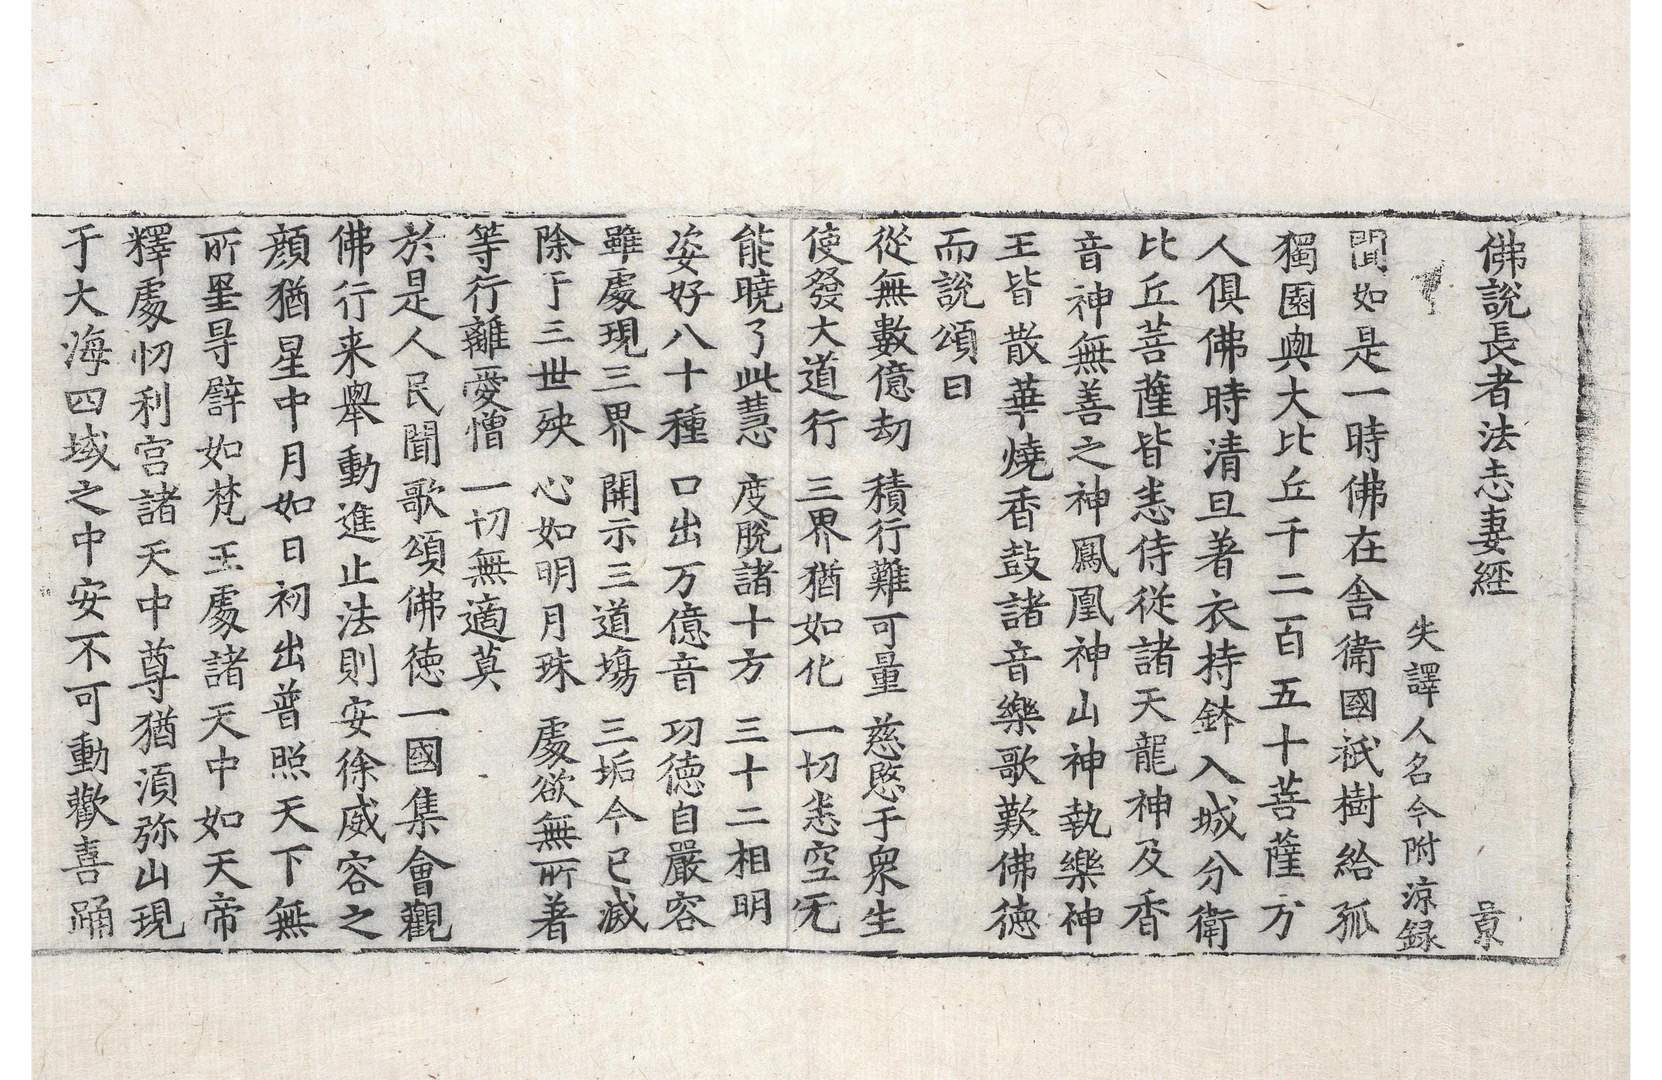 佛說長者法志妻經 景
失譯人名今附涼錄
聞如是一時佛在舍衛國祇樹給孤
獨園與大比丘千二百五十菩薩方
人俱佛時清旦著衣持鉢入城分衛
比丘菩薩皆悉侍從諸天龍神及香
音神無善之神鳳凰神山神執樂神
王皆散華燒香鼓諸音樂歌歎佛德
而說頌曰
從無數億劫 積行難可量 慈愍于衆生
使發大道行 三界猶如化 一切悉空无
能曉了此慧 度脫諸十方 三十二相明
姿好八十種 口出万億音 功德自嚴容
雖處現三界 開示三道場 三垢今已滅
除于三世殃 心如明月珠 處欲無所著
等行離愛憎 一切無適莫
於是人民聞歌頌佛德一國集會觀
佛行来舉動進止法則安徐威容之
顔猶星中月如日初出普照天下無
所罣㝵譬如梵王處諸天中如天帝
釋處忉利宮諸天中尊猶湏弥山現
于大海四域之中安不可動歡喜踊